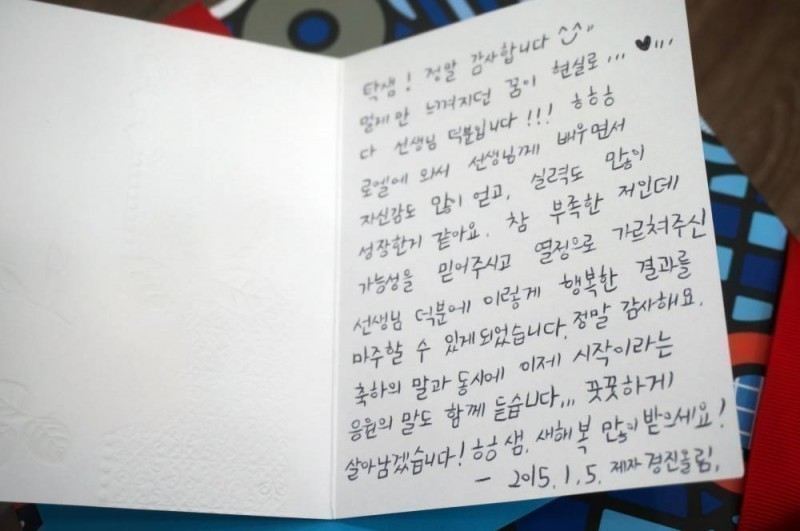 탁샘! 정말 감사합니다 ^^
멀게만 느껴지던 꿈이 현실로... ♥...
다 선생님 덕분입니다!!! ㅎㅎㅎ
로엘에 와서 선생님께 배우면서
자신감도 많이 얻고, 실력도 많이
성장한거 같아요. 참 부족한 저인데
가능성을 믿어주시고 열정으로 가르쳐주신
선생님 덕분에 이렇게 행복한 결과를
마주할 수 있게 되었습니다. 정말 감사해요.
축하의 말과 동시에 이제 시작이라는
응원의 말도 함께 듣습니다... 꿋꿋하게
살아남겠습니다! ㅎㅎ 샘. 새해 복 많이 받으세요!
- 2015.1.5. 제자 경진올림.